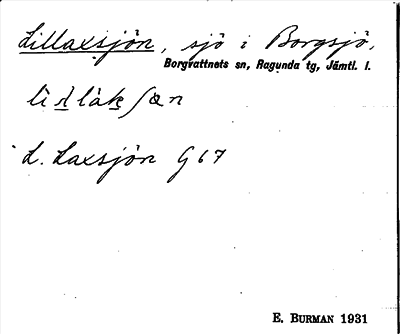 Lillaxsjön, sjö i Borgsjö,
Borgvattnets sn, Ragunda tg, Jämtl. l.
L. Laxsjön G 67
E. BURMAN 1931